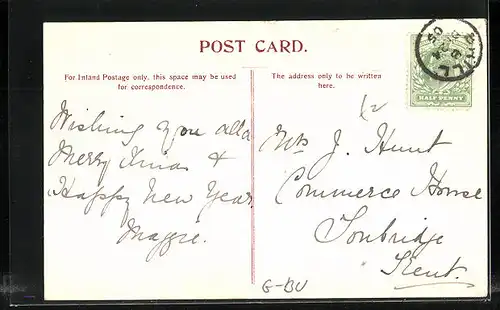 POST CARD.
For Inland Postage only, this space may be used
for correspondence.
The address only to be written
here.
HALF PENNY
Wishing you all a
Merry Xmas &
Happy New Year
Maggie.
J. Hunt
Commerce House
Tonbridge
Kent.
G-BU